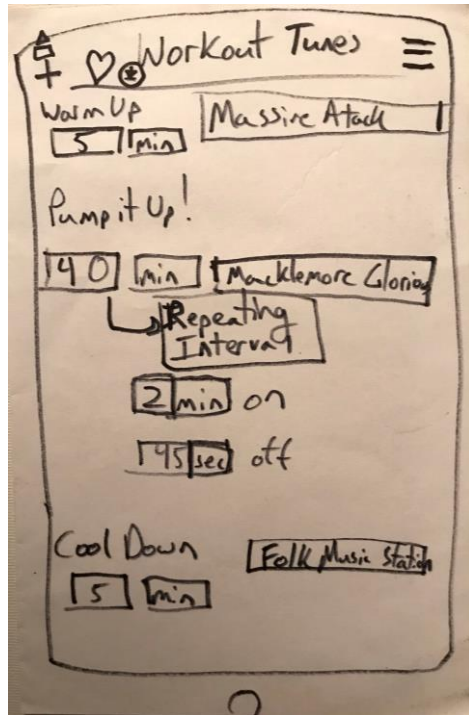 Workout Tunes
Warm Up
Massive Atack
5 min
Pump it Up!
40 min Macklemore Glorious
Repeating
Interval
2 min on
45 sec off
Cool Down
Folk Music Station
5 min